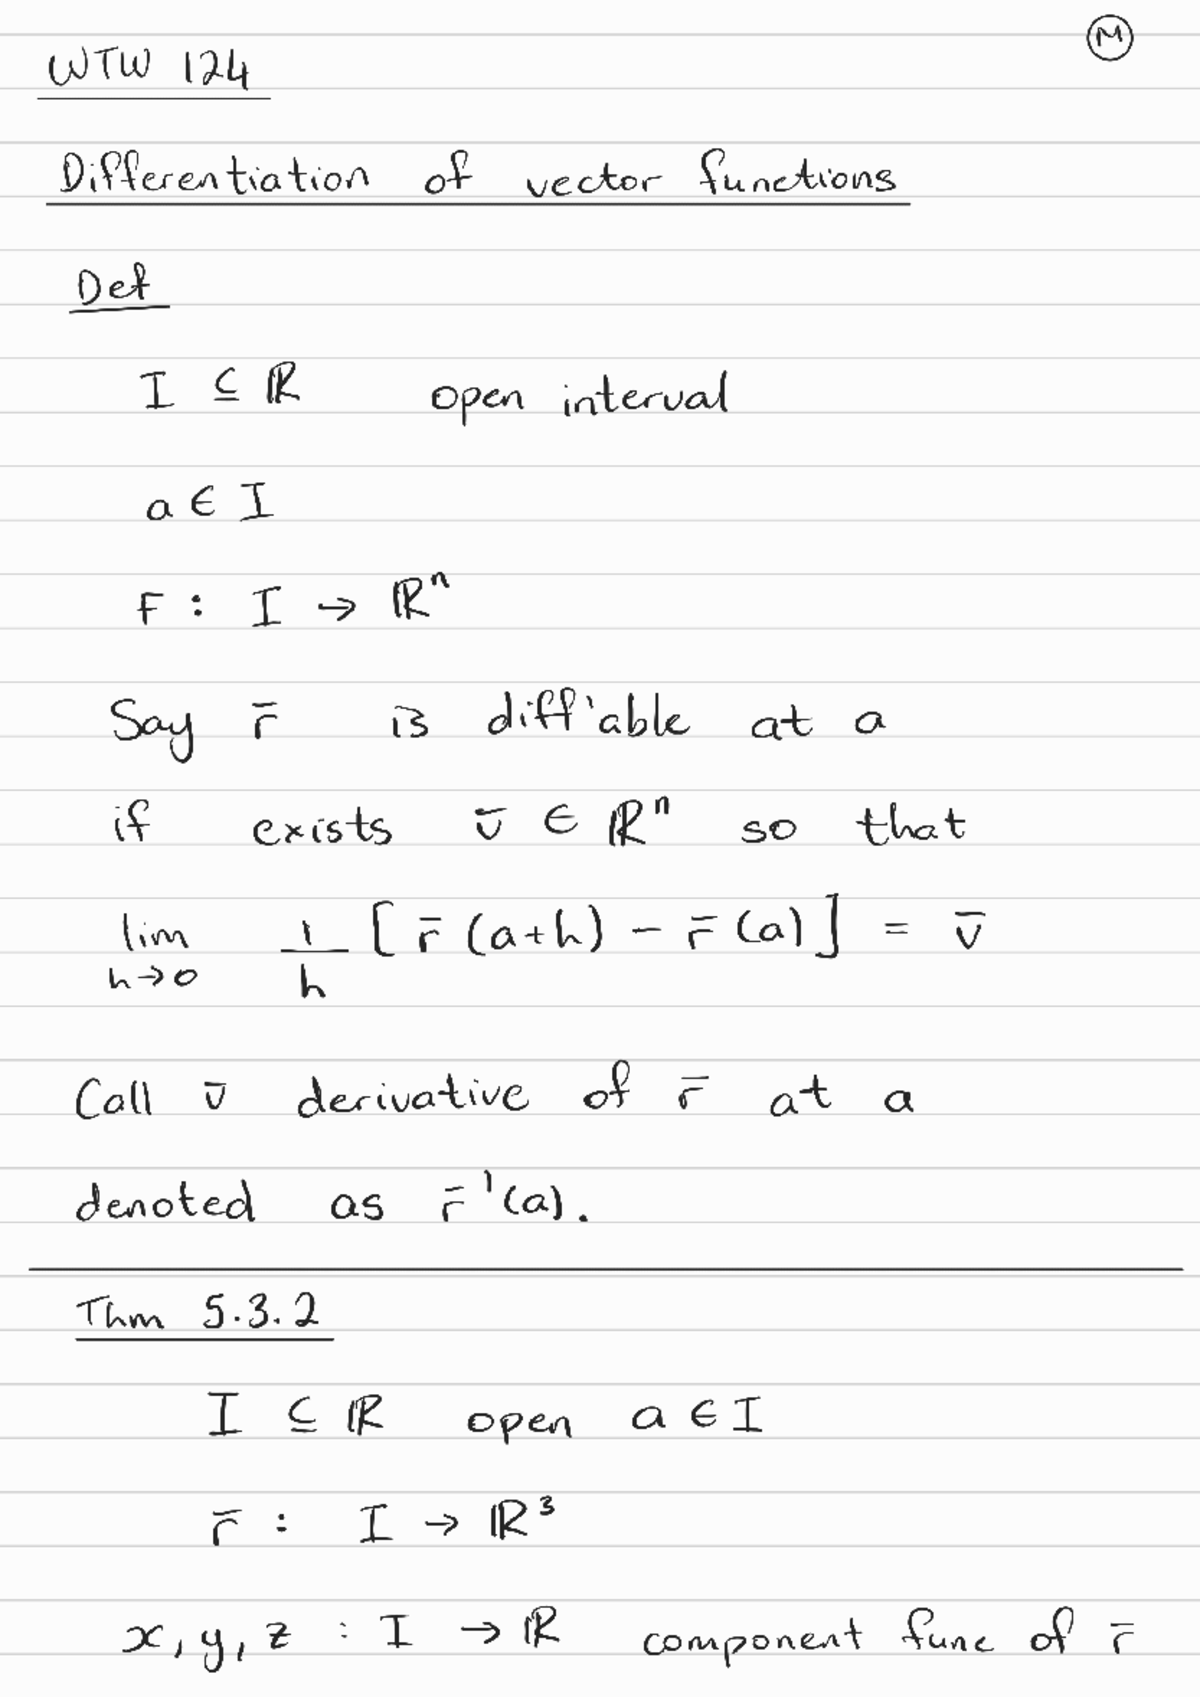 WTW 124
Ⓜ
Differentiation of vector functions
Def
I ⊆ ℝ open interval
a ∈ I
F : I → ℝⁿ
Say r̄ is diff'able at a
if exists v̄ ∈ ℝⁿ so that
lim h→0 1/h [ r̄ (a+h) − r̄ (a) ] = v̄
Call v̄ derivative of r̄ at a
denoted as r̄ '(a).
Thm 5.3.2
I ⊆ ℝ open a ∈ I
r̄ : I → ℝ³
x, y, z : I → ℝ component func of r̄